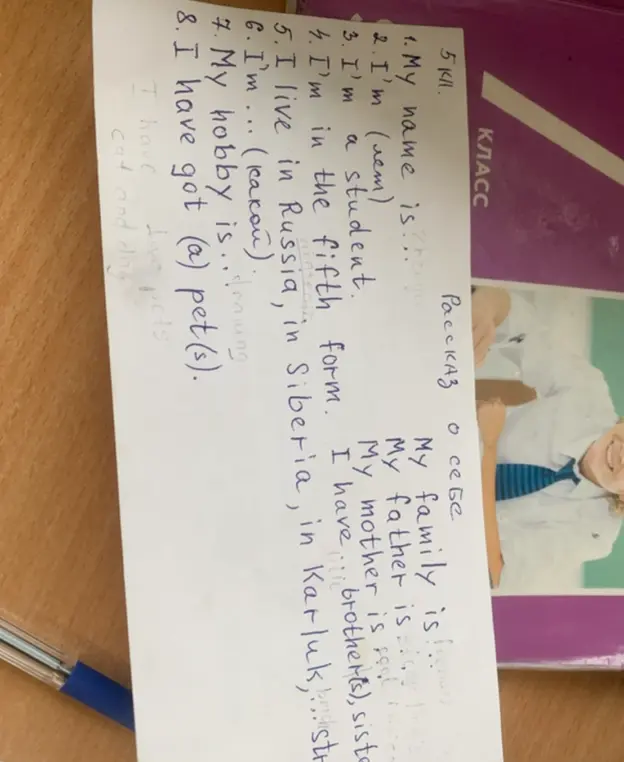 5 кл. Рассказ о себе
1. My name is...
2. I'm (лет)
3. I'm a student.
4. I'm in the fifth form.
5. I live in Russia, in Siberia, in Karluk, ... str
6. I'm ... (какой)
7. My hobby is...
8. I have got (a) pet(s).
My family is...
My father is
My mother is
I have brother(s), siste
drawing
I have two pets
cat and dog
КЛАСС